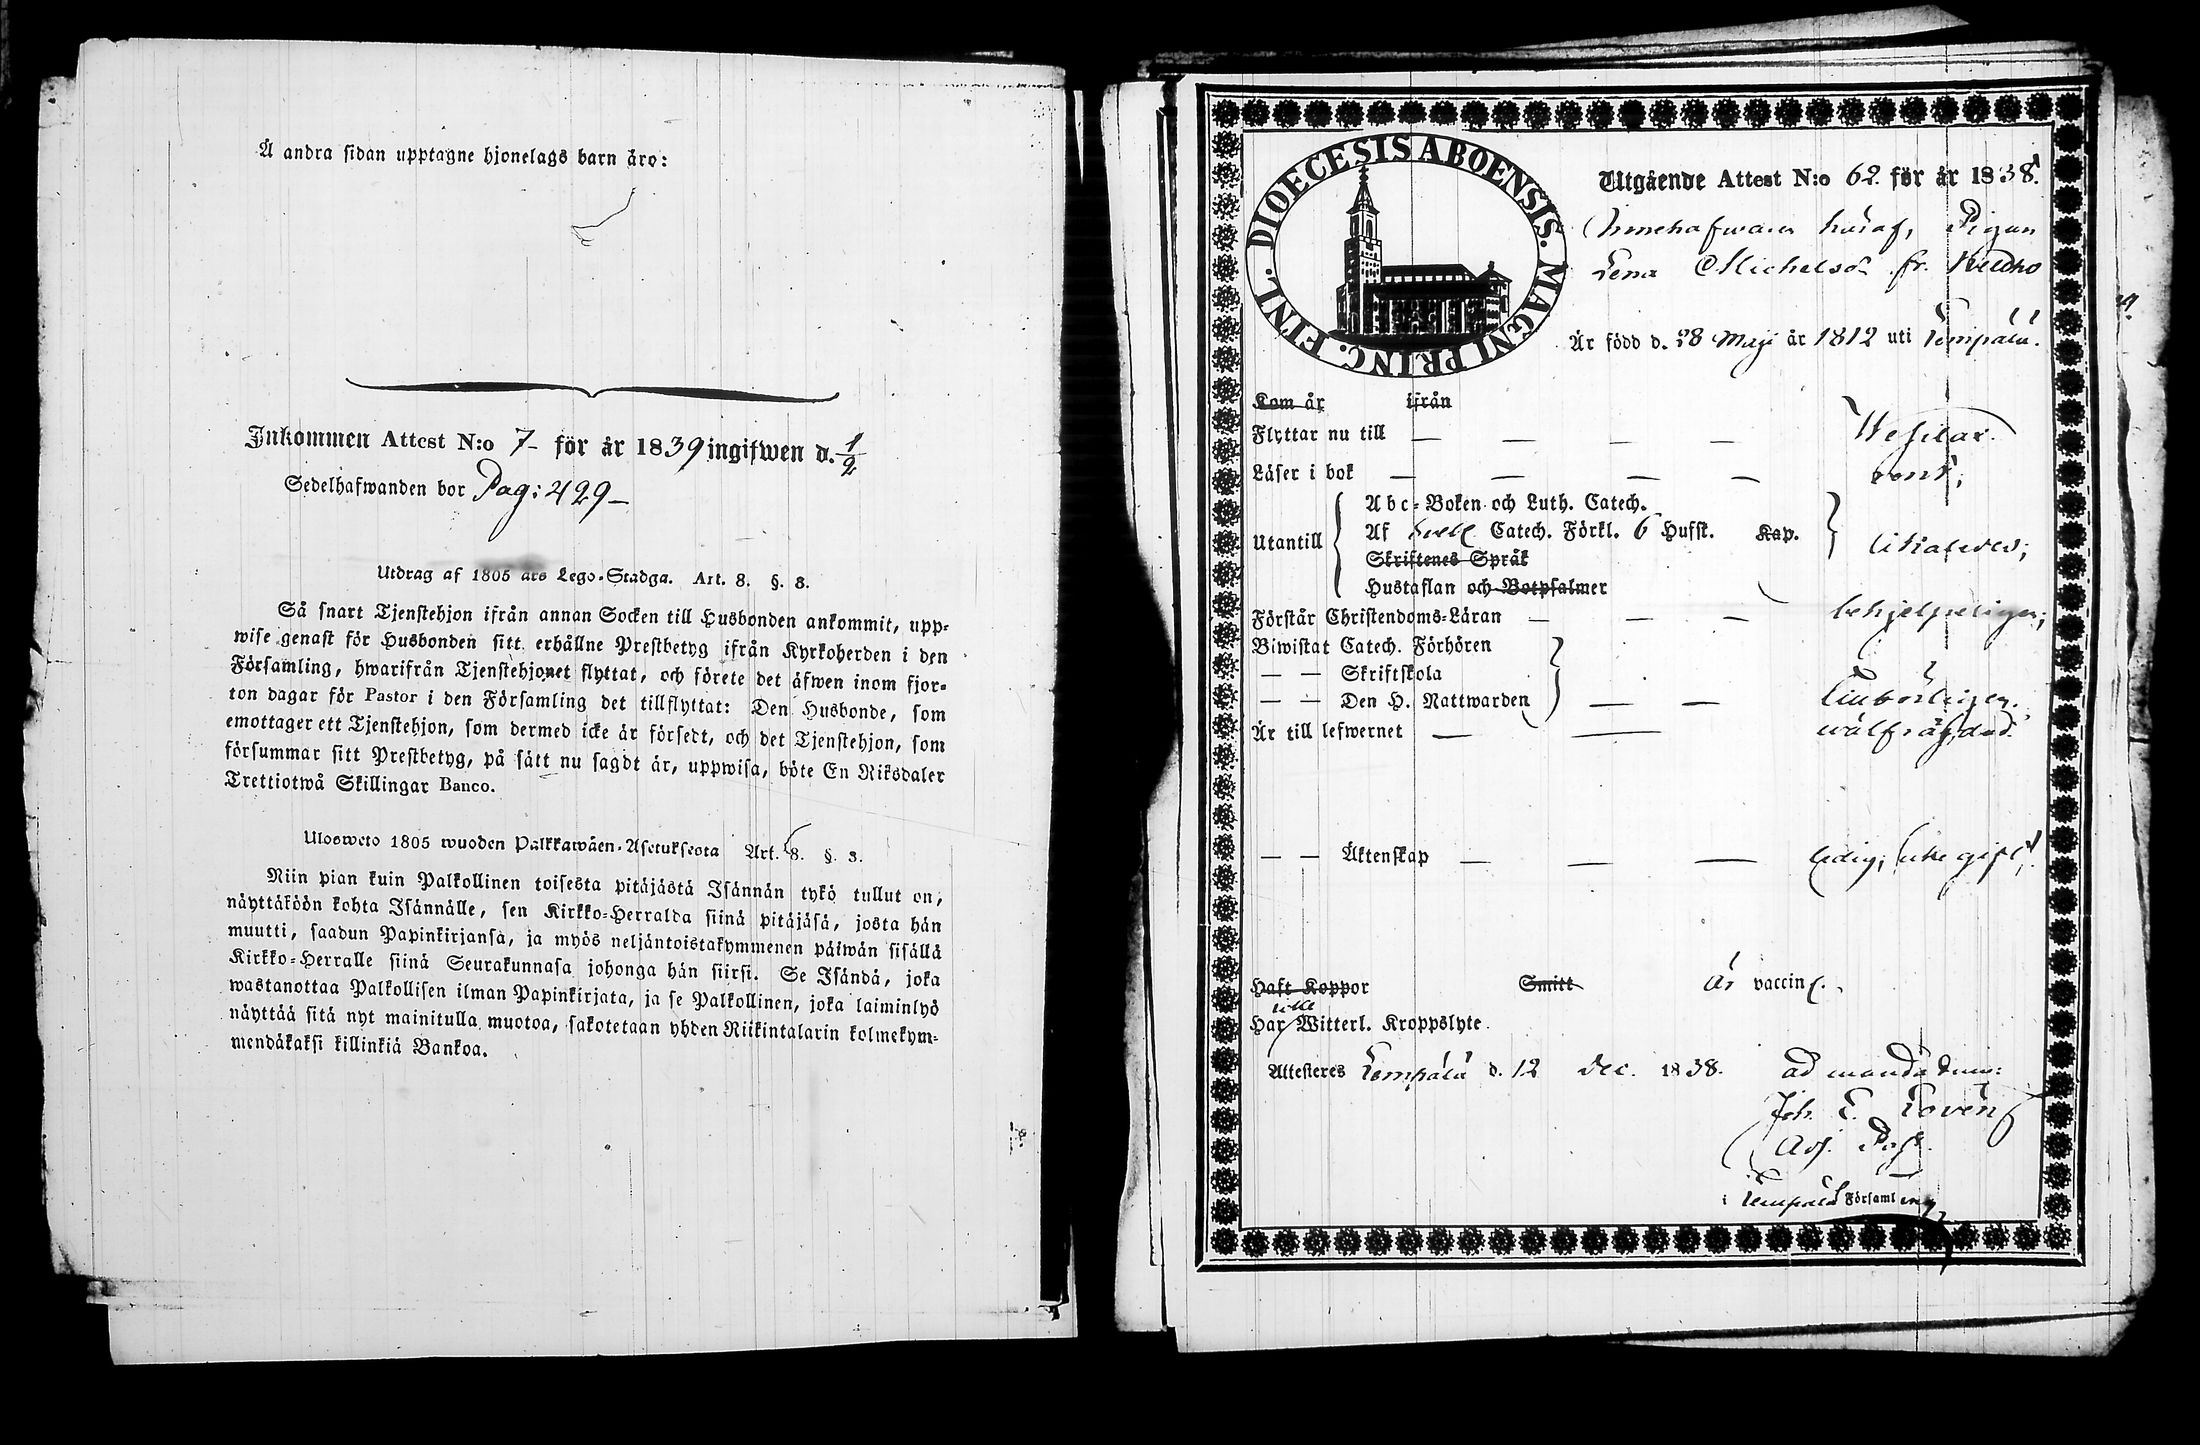 Å andra sidan upptagne hjonelags barn äro:
Inkommen Attest N:o 7 för år 1839 ingifwen d. 1/2
Sedelhafwanden bor Pag: 429
Utdrag af 1805 års Lego-Stadga. Art. 8. §. 8.
Så snart Tjenstehjon ifrån annan Socken till Husbonden ankommit, upp-
wise genast för Husbonden sitt erhållne Prestbetyg ifrån Kyrkoherden i den
Församling, hwarifrån Tjenstehjonet flyttat, och förete det äfwen inom fjor-
ton dagar för Pastor i den Församling det tillflyttat: Den Husbonde, som
emottager ett Tjenstehjon, som dermed icke är försedt, och det Tjenstehjon, som
försummar sitt Prestbetyg, på sätt nu sagdt är, uppwisa, böte En Riksdaler
Trettiotwå Skillingar Banco.
Ulosweto 1805 wuoden Palkkawäen-Asetuksesta Art. 8. §. 8.
Niin pian kuin Palkollinen toisesta pitäjästä Isännän tykö tullut on,
näyttäköön kohta Isännälle, sen Kirkko-Herralda siinä pitäjäsä, josta hän
muutti, saadun Papinkirjansa, ja myös neljäntoistakymmenen päiwän sisällä
Kirkko-Herralle siinä Seurakunnasa johonga hän siirsi. Se Isändä, joka
wastanottaa Palkollisen ilman Papinkirjata, ja se Palkollinen, joka laiminlyö
näyttää sitä nyt mainitulla muotoa, sakotetaan yhden Riikintalarin kolmekym-
mendäkaksi killinkiä Bankoa.
DIOECESIS ABOENSIS. MAGNI PRINC. FINL.
Utgående Attest N:o 62. för år 1838.
Innehafwaren häraf, Pigan
Lena Michelsdr fr.
Är född d. 28 Maji år 1812 uti Lempälä.
Kom år ifrån
Flyttar nu till — — — — Wesilax.
Läser i bok — — — — rent;
Utantill
Abc-Boken och Luth. Catech.
Af Catech. Förkl. 6 Hufst. Kap.
Skriftenes Språk
Hustaflan och Botpsalmer
likaledes;
Förstår Christendoms-Läran — — — behjelpeligen;
Biwistat Catech. Förhören
— — Skriftskola
— — Den H. Nattwarden — —
Är till lefwernet — — wälfrägdad.
— — Äktenskap — — — ledig, icke gift;
Haft Koppor Smitt är vaccin.
Har icke Witterl. Kroppslyte.
Attesteres Lempälä d. 12 Dec. 1838. ad mandatum:
Joh. E. Lovén
Adj. Past.
i Lempälä Församling